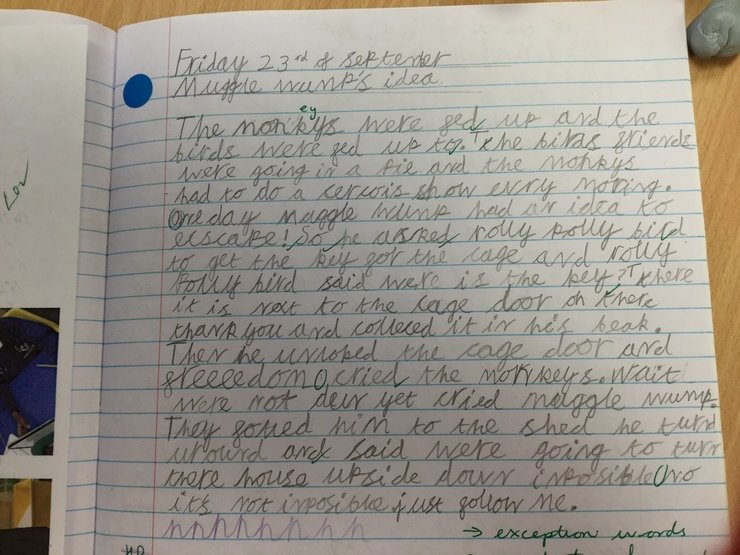 Lev
Friday 23rd of September
Muggle wump's idea.
ey
The monkeys were fed up and the
birds were fed up to. The birds friends
were going in a pie and the monkys
had to do a cercois show evry moring.
One day muggle wump had an idea to
ecscape! So he asked rolly polly bird
to get the key for the cage and rolly
polly bird said were is the key? There
it is next to the cage door oh there
thank you and colleced it in he's beak.
Then he unloked the cage door and
freeeedom cried the monkeys. wait
were not dun yet cried muggle wump.
They follled him to the shed he turd
uround and said were going to turn
there house upside down imposible no
it's not imposible just follow me.
h h h h h h h h
→ exception words